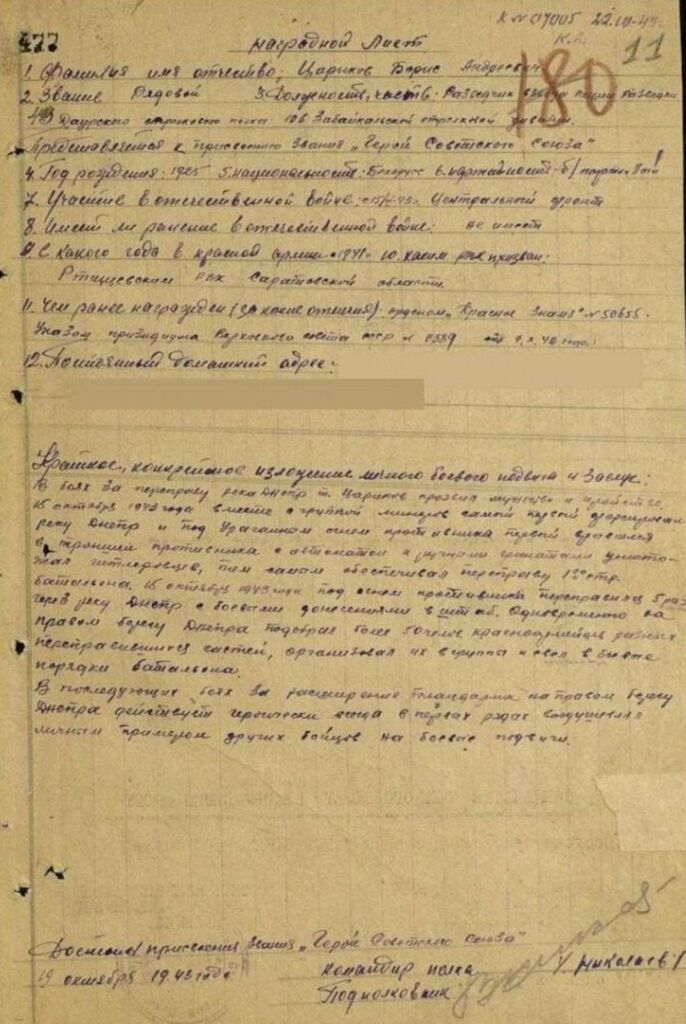 477
22.10.43
11
180
Наградной Лист
1. Фамилия имя отчество: Цариков Борис Андреевич
2. Звание Рядовой 3. Должность, часть: Разведчик взвода пешей разведки
Даурского стрелкового полка 106 Забайкальской стрелковой дивизии.
Представляется к присвоению звания „Герой Советского Союза"
4. Год рождения: 1925 5. национальность: Белорус 6. партийность: б/
7. Участие в отечественной войне: Центральный фронт
8. Имеет ли ранение в отечественной войне: не имеет
9. С какого года в красной армии: 1941г 10. каким РВК призван:
Ртищевским РВК Саратовской области.
11. Чем ранее награжден (за какие отличия): орденом „Красное Знамя" № 50655.
Указом президиума Верховного совета СССР
12. Постоянный домашний адрес:
Краткое, конкретное изложение личного боевого подвига и заслуг:
В боях за переправу реки Днепр т. Цариков проявил мужество и геройство,
15 октября 1943 года вместе с группой минеров самый первый форсировал
реку Днепр и под ураганным огнем противника первый ворвался
в траншеи противника с автоматом и ручными гранатами уничто-
жал гитлеровцев, тем самым обеспечивал переправу 1го стр.
батальона. 15 октября 1943 года под огнем противника переправился 5 раз
через реку Днепр с боевыми донесениями в штаб. Одновременно на
правом берегу Днепра подобрал более 50 челов. красноармейцев разных
переправившихся частей, организовал их в группы и свел в боевые
порядки батальона.
В последующих боях за расширение плацдарма на правом берегу
Днепра действует героически всегда в первых рядах воодушевляя
личным примером других бойцов на боевые подвиги.
Достоин присвоения звания „Герой Советского Союза"
19 октября 1943 года командир полка
Подполковник /Николаев/